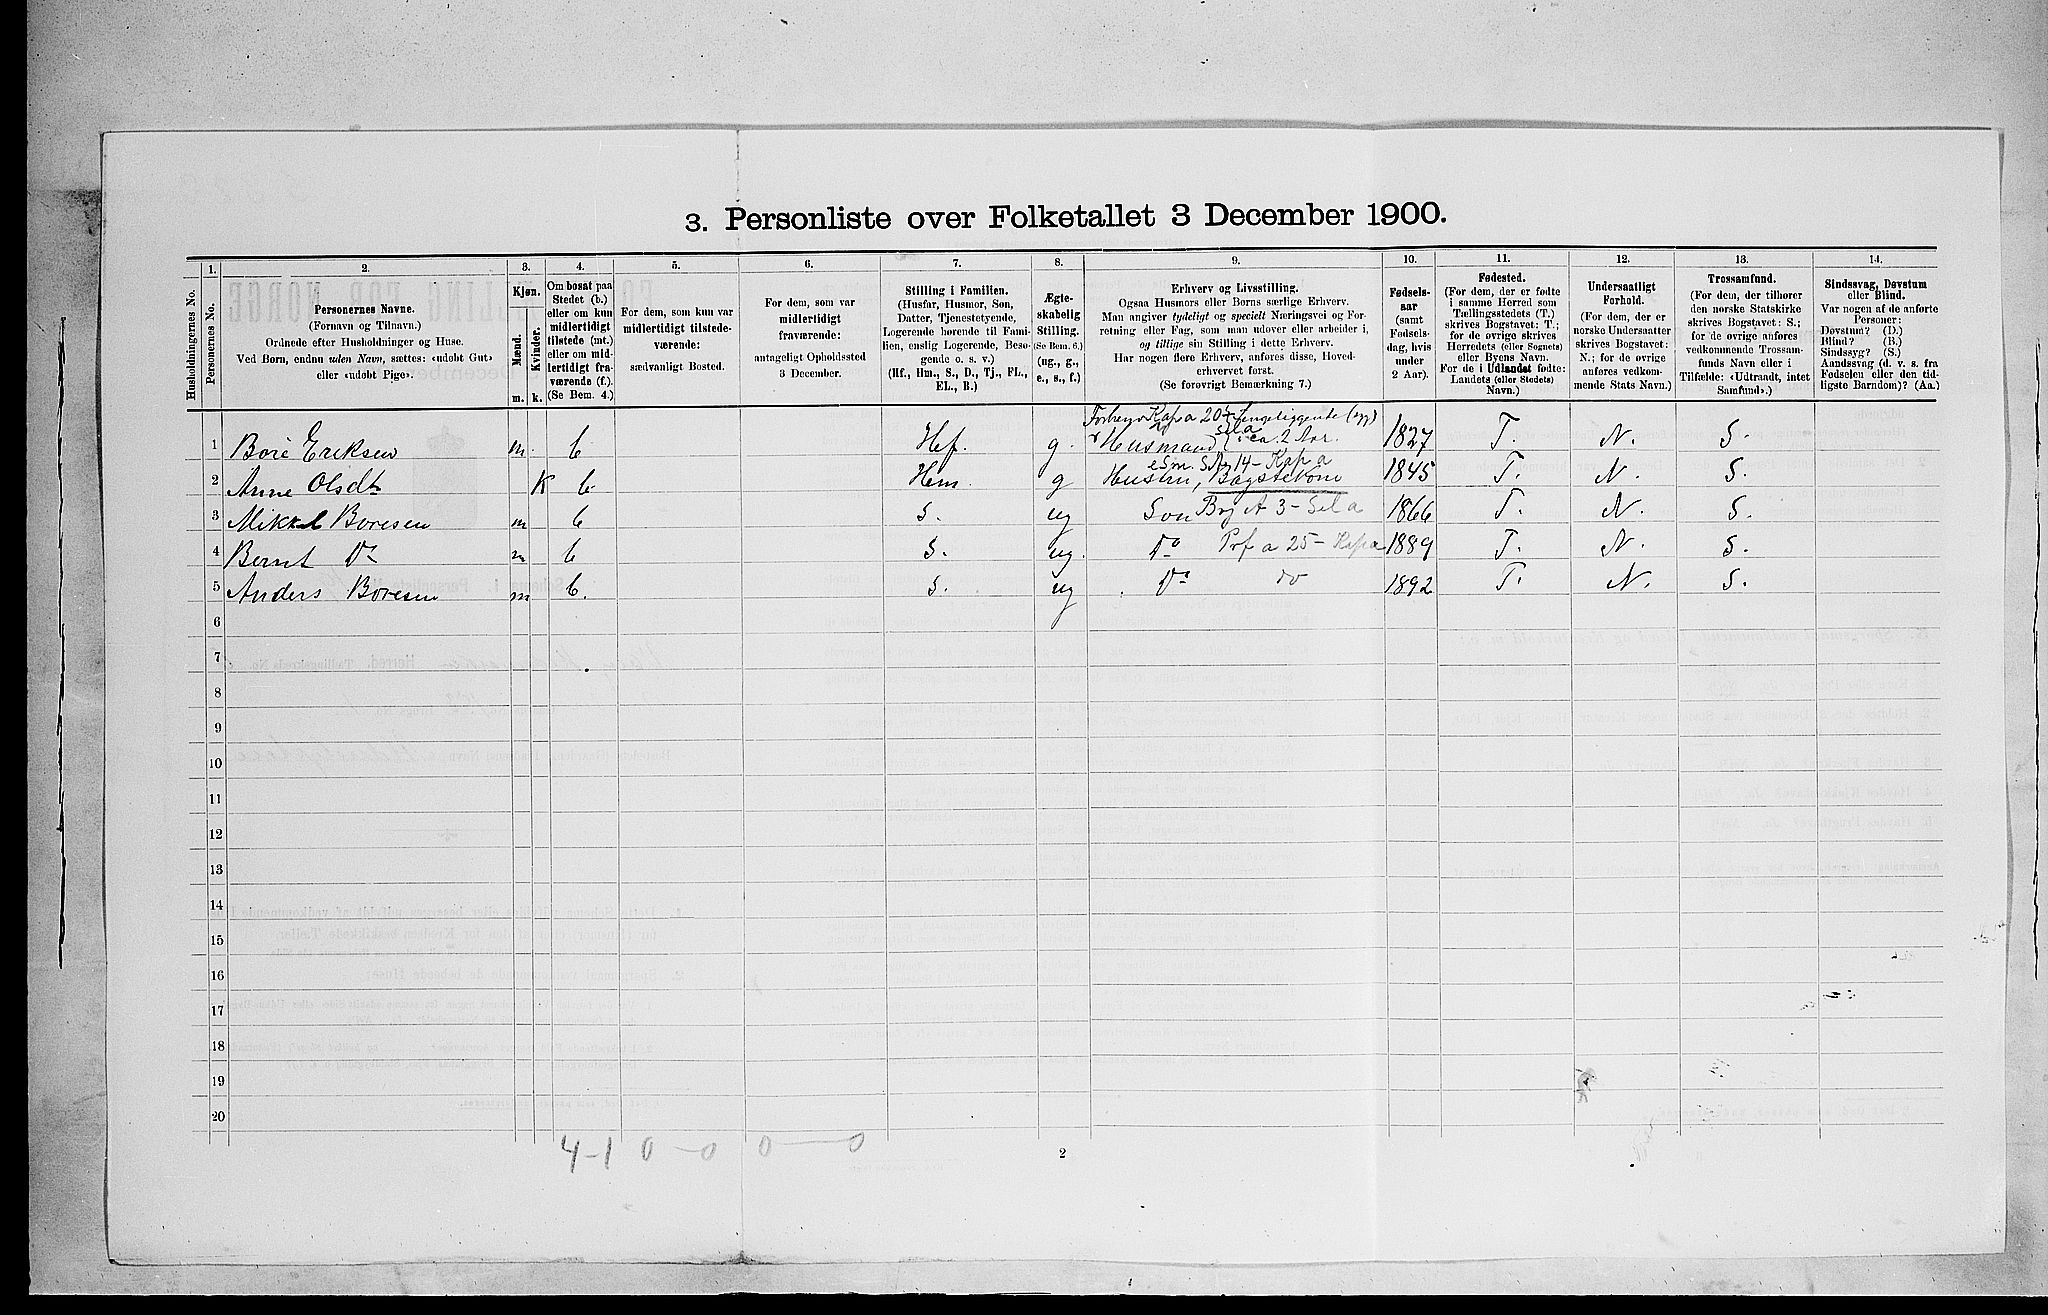 3. Personliste over Folketallet 3 December 1900.
Husholdningernes No.
1.
Personernes No.
2.
Personernes Navne.
(Fornavn og Tilnavn.)
Ordnede efter Husholdninger og Huse.
Ved Børn, endnu uden Navn, sættes: «udøbt Gut»
eller «udøbt Pige».
3.
Kjøn.
Mænd.
Kvinder.
m.
k.
4.
Om bosat paa
Stedet (b.)
eller om kun
midlertidigt
tilstede (mt.)
eller om mid-
lertidigt fra-
værende (f.).
(Se Bem. 4.)
5.
For dem, som kun var
midlertidigt tilstede-
værende:
sædvanligt Bosted.
6.
For dem, som var
midlertidigt
fraværende:
antageligt Opholdssted
3 December.
7.
Stilling i Familien.
(Husfar, Husmor, Søn,
Datter, Tjenestetyende,
Logerende hørende til Fami-
lien, enslig Logerende, Besø-
gende o. s. v.)
(Hf., Hm., S., D., Tj., FL.,
EL., B.)
8.
Ægte-
skabelig
Stilling.
(Se Bem. 6.)
(ug., g.,
e., s., f.)
9.
Erhverv og Livsstilling.
Ogsaa Husmors eller Børns særlige Erhverv.
Man angiver tydeligt og specielt Næringsvei og For-
retning eller Fag, som man udover eller arbeider i,
og tillige sin Stilling i dette Erhverv.
Har nogen flere Erhverv, anføres disse, Hoved-
erhvervet først.
(Se forøvrigt Bemærkning 7.)
10.
Fødsels-
aar
(samt
Fødsels-
dag, hvis
under
2 Aar).
11.
Fødested.
(For dem, der er fødte
i samme Herred som
Tællingsstedets (T.)
skrives Bogstavet: T.;
for de øvrige skrives
Herredets (eller Sognets)
eller Byens Navn.
For de i Udlandet fødte:
Landets (eller Stedets)
Navn.)
12.
Undersaatligt
Forhold.
(For dem, der er
norske Undersaatter
skrives Bogstavet:
N.; for de øvrige
anføres vedkom-
mende Stats Navn.)
13.
Trossamfund.
(For dem, der tilhører
den norske Statskirke
skrives Bogstavet: S.;
for de øvrige anføres
vedkommende Trossam-
funds Navn eller i
Tilfælde: «Udtraadt, intet
Samfund».)
14.
Sindssvag, Døvstum
eller Blind.
Var nogen af de anførte
Personer:
Døvstum? (D.)
Blind? (B.)
Sindssyg? (S.)
Aandssvag (d. v. s. fra
Fødselen eller den tid-
ligste Barndom)? (Aa.)
1 Bore Eriksen m. b Hf. g. Husmand ca. 2 Aar. 1827 T. N. S.
2 Anne Olsdt K b Hm. g Hustru, 1845 T. N. S.
3 Mikkel Boresen m b S. ug Søn 1866 T. N. S.
4 Bernt Do m b S. ug. Do Prf a 25 - Kap a 1889 T. N. S.
5 Anders Boresen m b. S. ug Do do 1892 T. N. S.
6
7
8
9
10
11
12
13
14
15
16
17
18
19
20
4-1 0 - 0 0 - 0
2